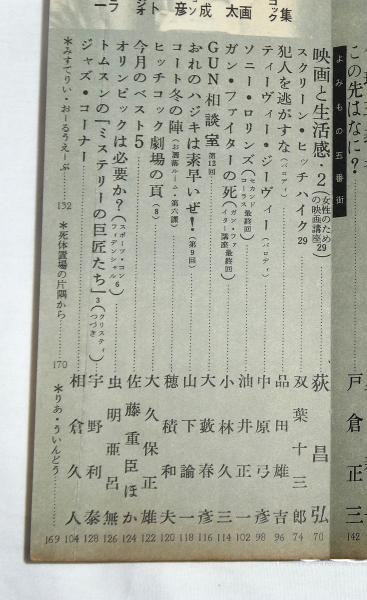 集
この先はなに？ 戸倉正三 142
よみもの五番街
映画と生活感・2（女性のための映画講座29） 荻昌弘 70
スクリーン・ヒッチハイク29 双葉十三郎 74
犯人を逃がすな（パロディ） 品田雄吉 96
ティーヴィー・ジーヴィー（パロディ） 中原弓彦 98
ソニー・ロリンズ（セカンド・コーラス 最終回） 油井正一 102
ガン・ファイターの死（ガン・ファイター講座 最終回） 小林久三 114
GUN相談室 第12回 大藪春彦 116
おれのハジキは素早いぜ！（第9回） 山下諭一 118
コート冬の陣（お洒落ルーム・第六課） 穂積和夫 120
ヒッチコック劇場の頁（8） 大久保正雄 122
今月のベスト5 佐藤重臣ほか 124
オリンピックは必要か？（スポーツ・コンフィデンシャル6） 虫明亜呂無 126
トムスンの「ミステリーの巨匠たち」3（クリスティつづき） 宇野利泰 128
ジャズ・コーナー 相倉久人 104
＊みすてりい・おーるうえーぶ 132 ＊死体置場の片隅から 170 ＊りあ・ういんどう 169